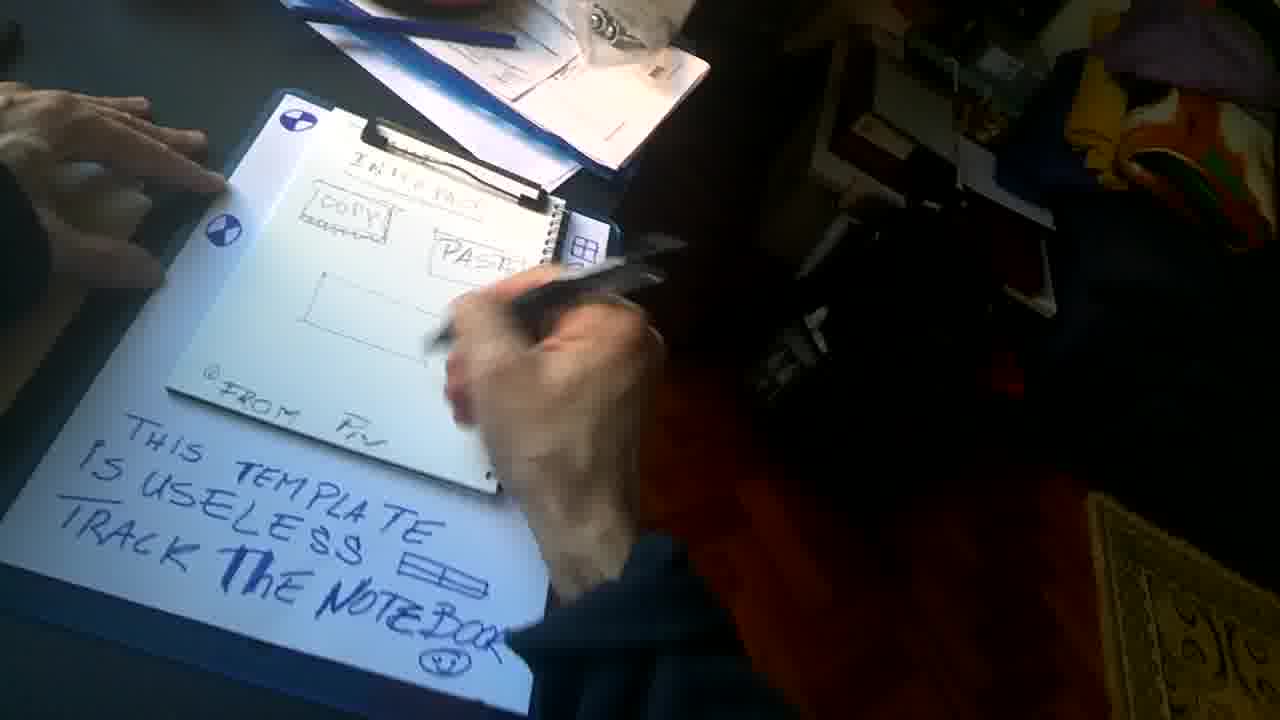 COPY
PASTE
FROM
THIS TEMPLATE
IS USELESS
TRACK THE NOTEBOOK